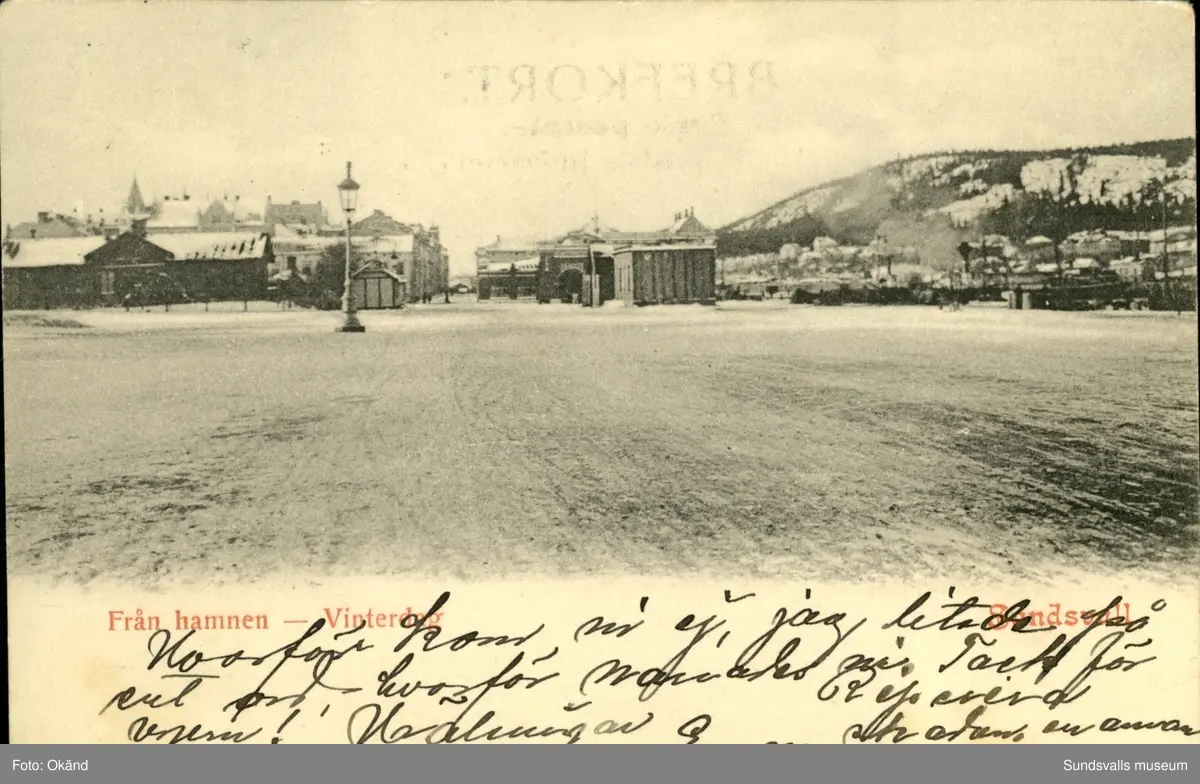 BREFKORT.
Från hamnen — Vinterdag Sundsvall
Hvarför kom ni ej, jag litade på
ert ord, hvarför narrades ni. Tack för
vyern! Hälsningar
en annan
Foto: Okänd Sundsvalls museum